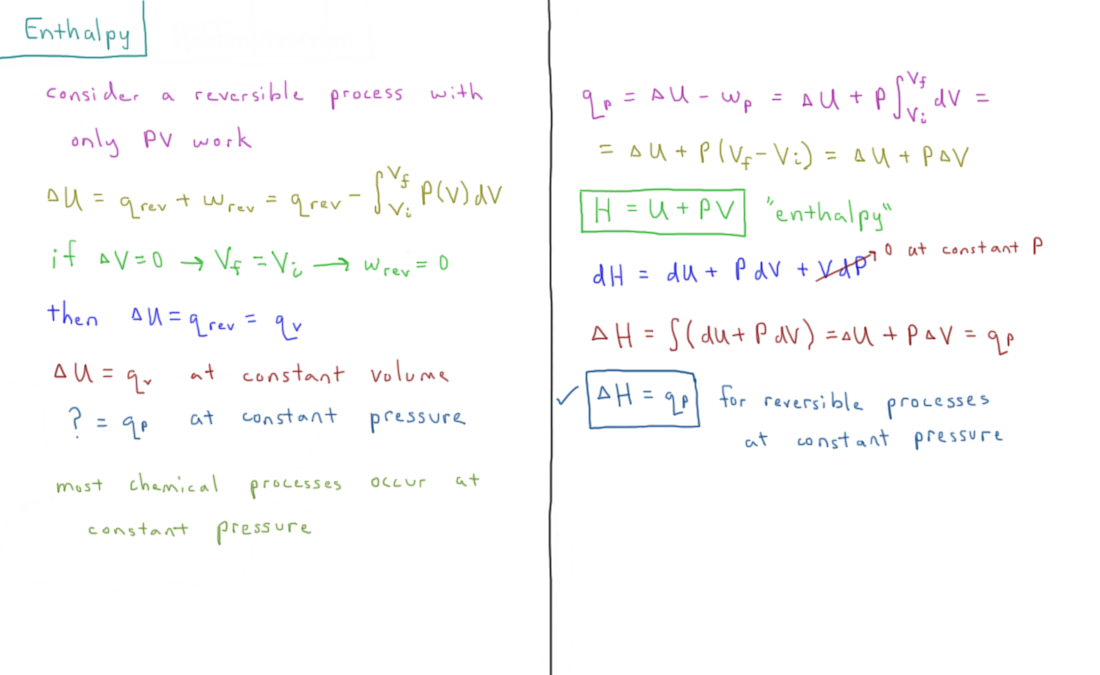 Enthalpy
consider a reversible process with
only PV work
ΔU = q_rev + w_rev = q_rev - ∫_{V_i}^{V_f} P(V)dV
if ΔV=0 → V_f = V_i → w_rev = 0
then ΔU = q_rev = q_v
ΔU = q_v at constant volume
? = q_p at constant pressure
most chemical processes occur at
constant pressure
q_p = ΔU - w_p = ΔU + P∫_{V_i}^{V_f} dV =
= ΔU + P(V_f - V_i) = ΔU + PΔV
H = U + PV "enthalpy"
dH = dU + PdV + VdP → 0 at constant P
ΔH = ∫(dU + PdV) = ΔU + PΔV = q_p
✓ ΔH = q_p for reversible processes
at constant pressure